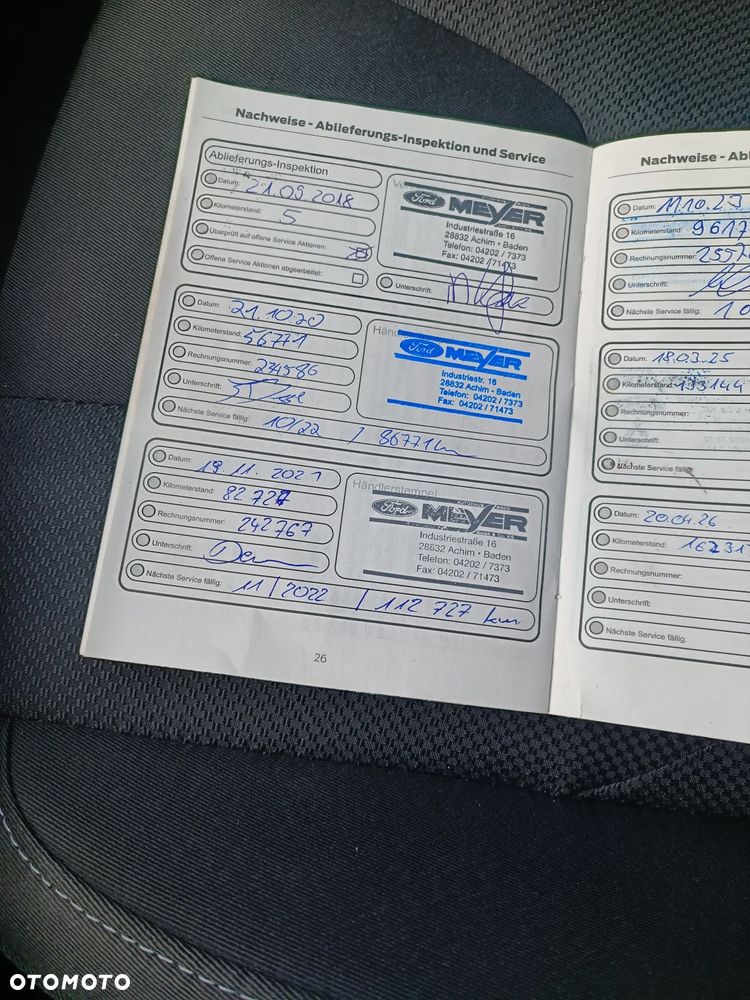 Nachweise - Ablieferungs-Inspektion und Service
Ablieferungs-Inspektion
Datum: 21.09 2018
Kilometerstand: 5
Überprüft auf offene Service Aktionen:
Offene Service Aktionen abgearbeitet:
Ford MEYER
Industriestraße 16
28832 Achim • Baden
Telefon: 04202 / 7373
Fax: 04202 / 71473
Unterschrift:
Datum: 21.10.20
Kilometerstand: 56771
Rechnungsnummer: 234586
Unterschrift:
Nächste Service fällig: 10/22 / 86771 km
Ford MEYER
Industriestr. 16
28832 Achim - Baden
Telefon: 04202 / 7373
Fax: 04202 / 71473
Datum: 19.11.2021
Kilometerstand: 82 727
Rechnungsnummer: 242767
Unterschrift:
Nächste Service fällig: 11/2022 / 112 727 km
Händlerstempel
Ford MEYER
Industriestraße 16
28832 Achim • Baden
Telefon: 04202 / 7373
Fax: 04202 / 71473
26
Nachweise - Abl
Datum: 11.10.23
Kilometerstand: 9617
Rechnungsnummer:
Unterschrift:
Nächste Service fällig: 10
Datum: 18.03.25
Kilometerstand: 133144
Rechnungsnummer:
Unterschrift:
Nächste Service fällig
Datum: 20.01.26
Kilometerstand: 16231
Rechnungsnummer:
Unterschrift:
Nächste Service fällig:
OTOMOTO